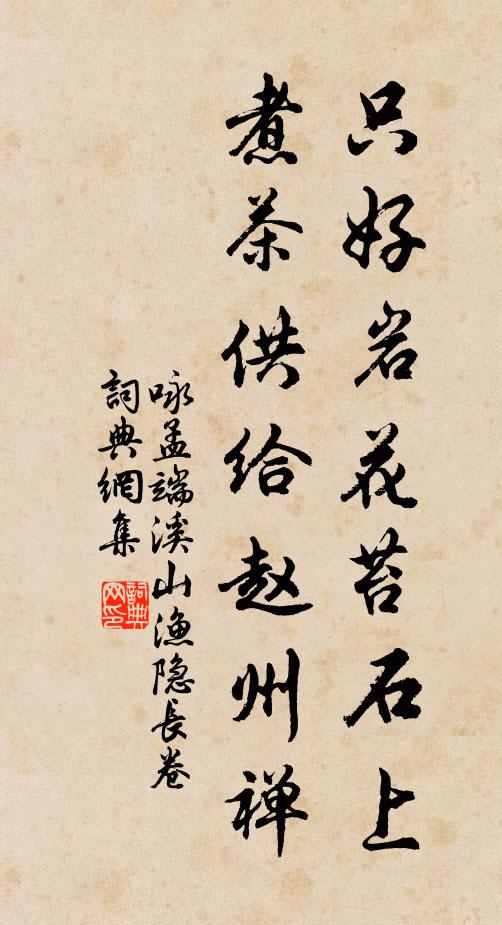 只好岩花苔石上
煮茶供给赵州禅
咏孟端溪山渔隐長卷
詞典網集
詞典网印